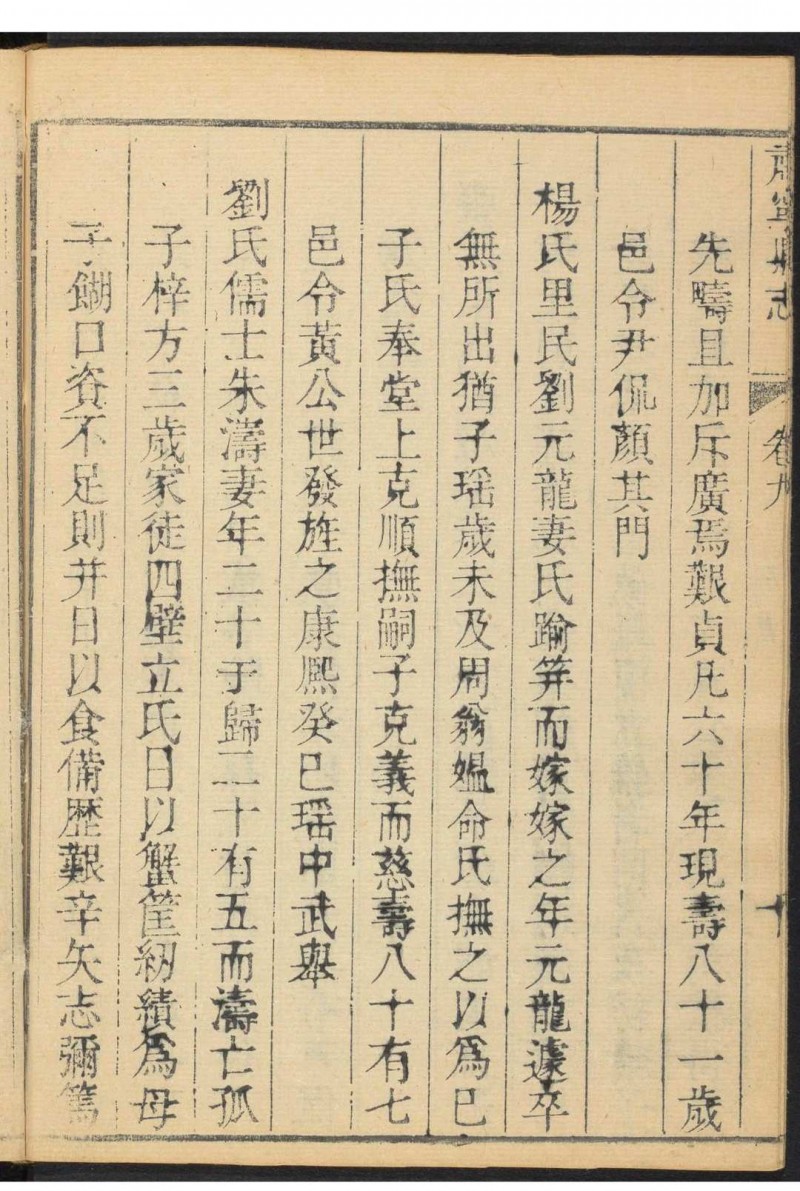 肅寧縣志
卷九
十
先疇且加斥廣焉艱貞凡六十年現壽八十一歲
邑令尹侃顏其門
楊氏里民劉元龍妻氏踰笄而嫁嫁之年元龍遽卒
無所出猶子瑶歲未及周翁媼命氏撫之以爲已
子氏奉堂上克順撫嗣子克義而慈壽八十有七
邑令黃公世發旌之康熙癸巳瑶中武舉
劉氏儒士朱濤妻年二十于歸二十有五而濤亡孤
子梓方三歲家徒四壁立氏日以蟹筐紉績爲母
子餬口資不足則并日以食備歷艱辛矢志彌篤